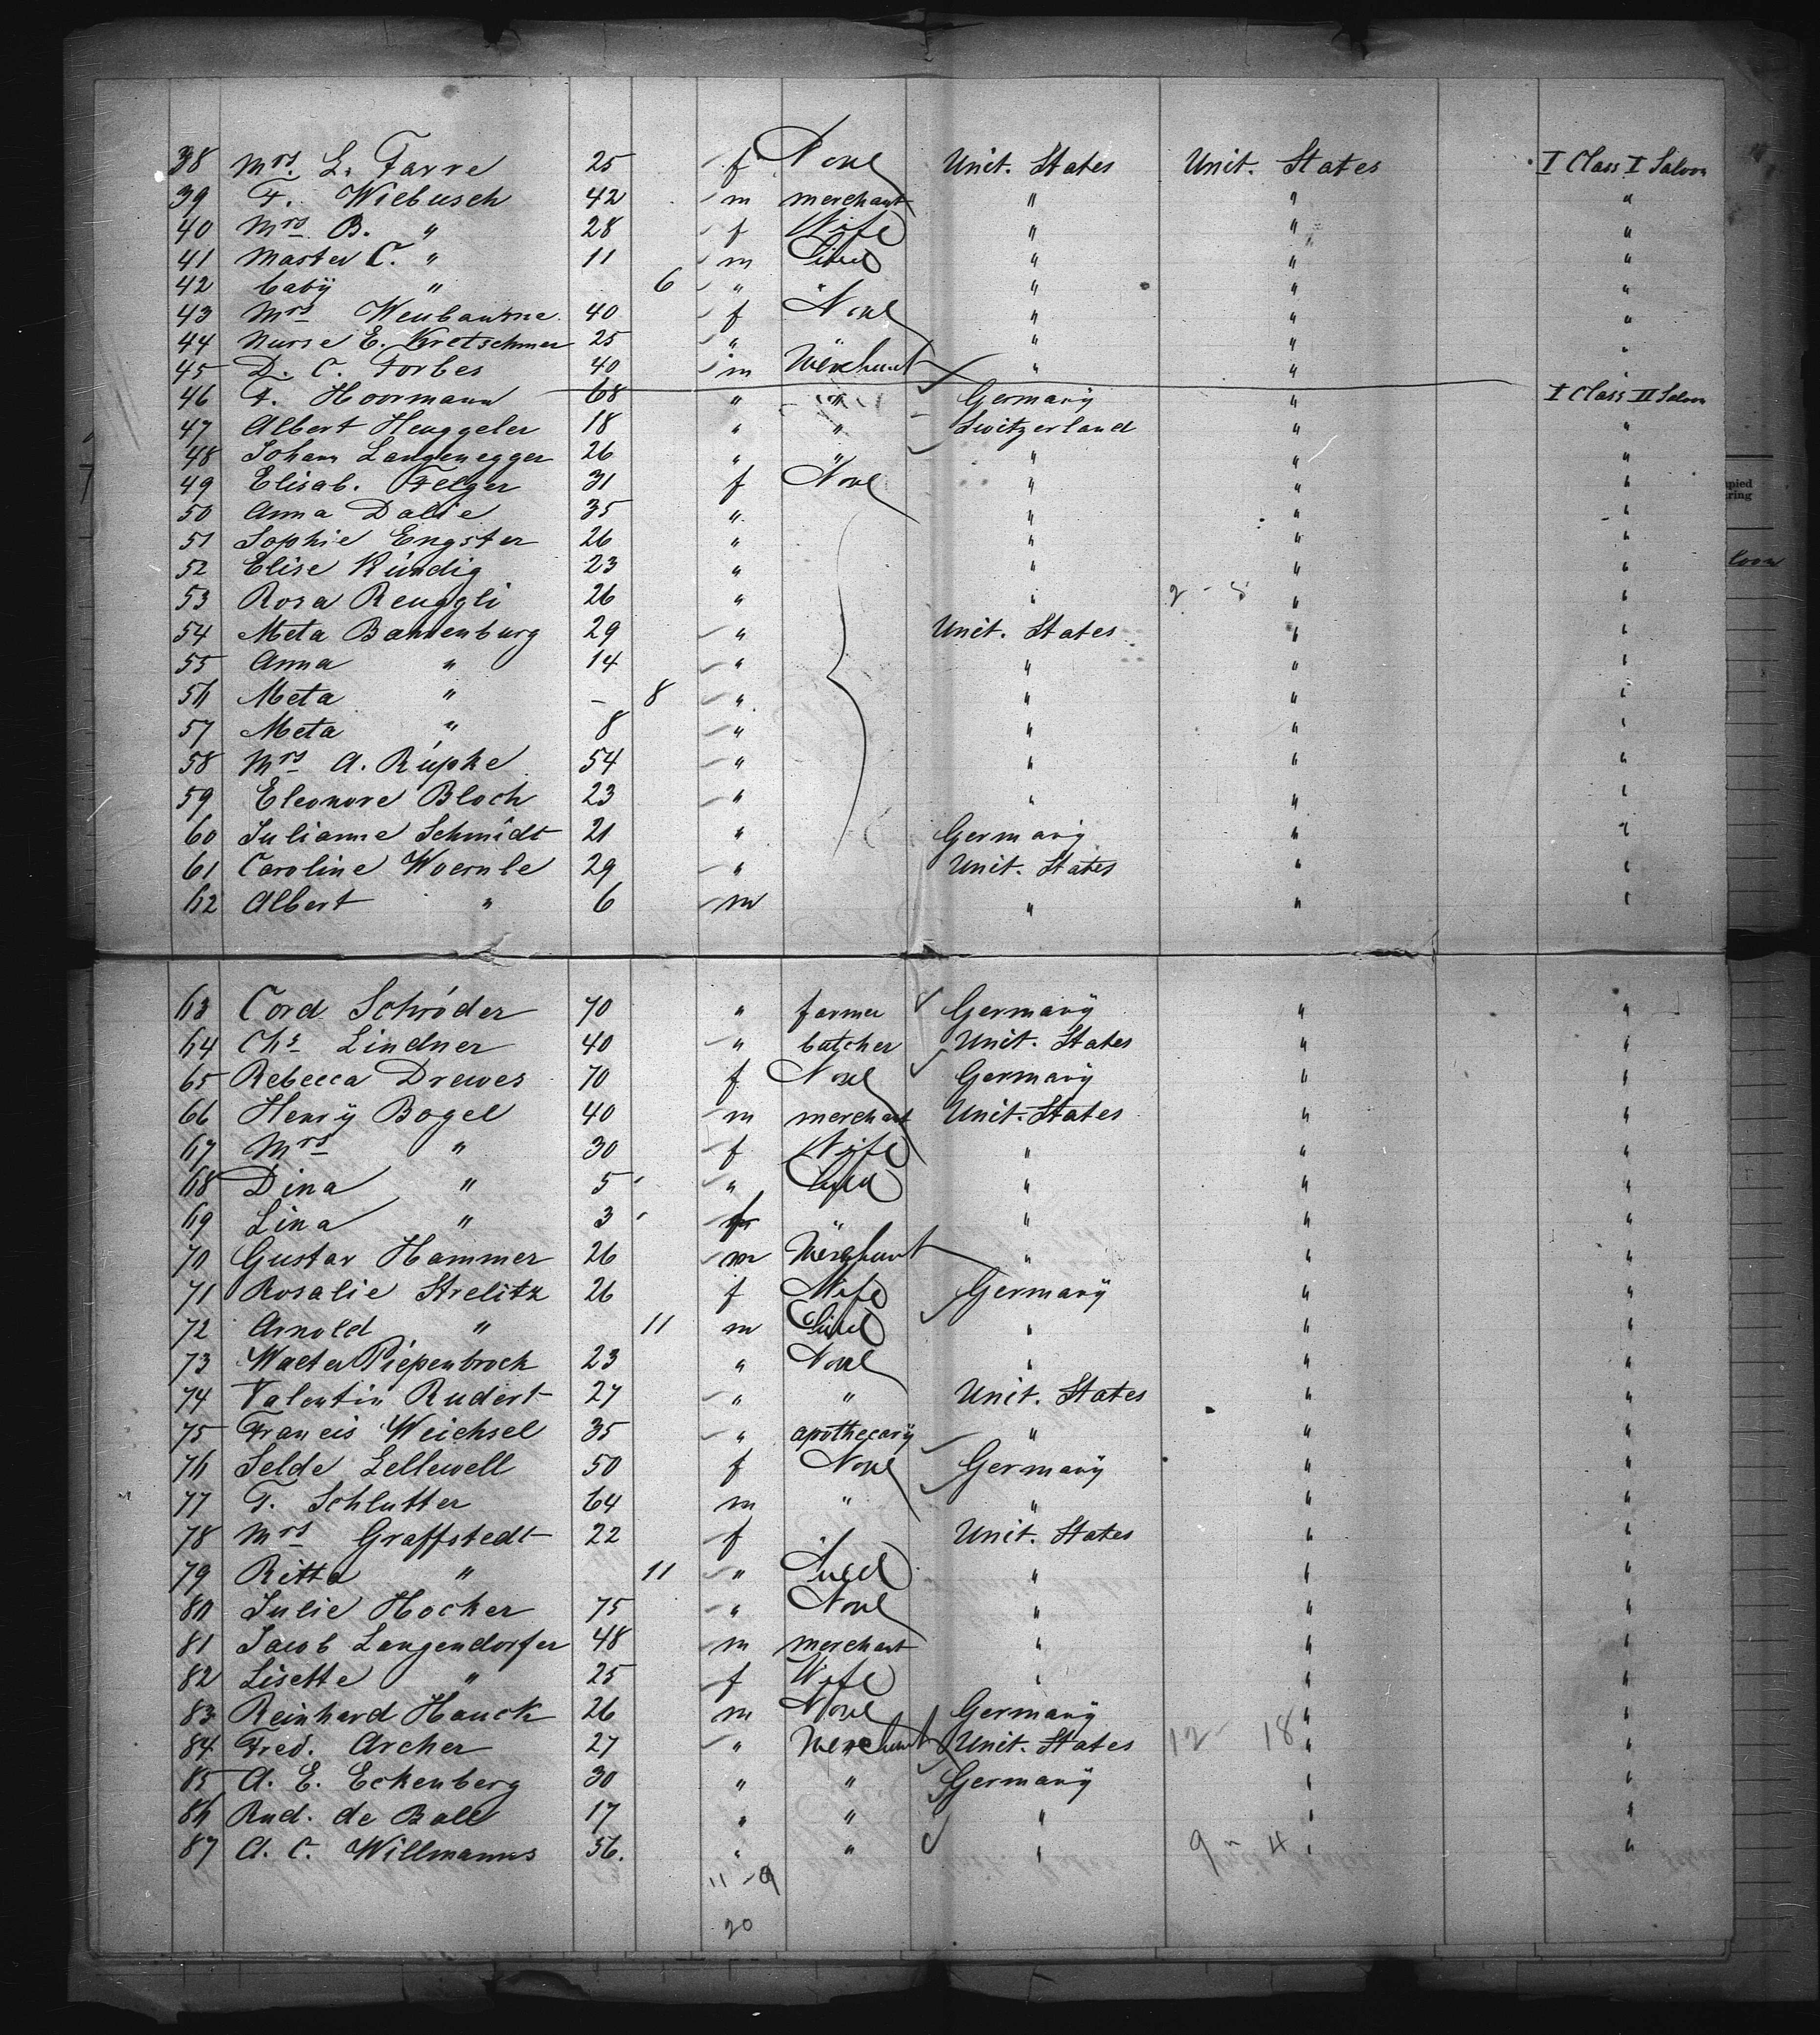 38 Mrs. L. Farre 25 f None Unit. States Unit. States I Class I Saloon
39 F. Wiebusch 42 m merchant " " "
40 Mrs B. " 28 f Wife " " "
41 Master C. " 11 m Child " " "
42 baby " 6 " " " " "
43 Mrs 40 f None " " "
44 Nurse E. Kretschmer 25 " " " "
45 D. C. Forbes 40 m Merchant " " "
46 F. Hoormann 68 " " Germany " I Class II Saloon
47 Albert Heuggeler 18 " " Switzerland " "
48 Johann Langenegger 26 " " " " "
49 Elisab. Felger 31 f None " " "
50 Anna Dalie 35 " " " "
51 Sophie Engster 26 " " " "
52 Elise Kündig 23 " " " "
53 Rosa Reuggli 26 " " 2 - 5 " "
54 Meta Bannenburg 29 " Unit. States " "
55 Anna " 14 " " " "
56 Meta " – 8 " " " "
57 Meta " 8 " " " "
58 Mrs A. Rüpke 54 " " " "
59 Eleonore Bloch 23 " " " "
60 Julianne Schmidt 21 " Germany " "
61 Caroline Woernle 29 " Unit. States " "
62 Albert " 6 m " " "
63 Cord Schröder 70 " farmer Germany " "
64 Chs Lindner 40 " butcher Unit. States " "
65 Rebecca Drewes 70 f None Germany " "
66 Henry Bogel 40 m merchant Unit. States " "
67 Mrs " 30 f Wife " " "
68 Dina " 5 " Child " " "
69 Lina " 3 " " "
70 Gustav Hammer 26 m Merchant " " "
71 Rosalie Strelitz 26 f Wife Germany " "
72 Arnold " 11 m Child " " "
73 Walter Piepenbrock 23 " None " " "
74 Valentin Rudert 27 " " Unit. States " "
75 Francis Weichsel 35 " apothecary " " "
76 Selde Lellewell 50 f None Germany " "
77 F. Schlutter 64 m " " " "
78 Mrs Graffstedt 22 f " Unit. States " "
79 Ritta " 11 " Child " " "
80 Julie Hocker 75 " None " " "
81 Jacob Langendorfer 48 m merchant " " "
82 Lisette " 25 f Wife " " "
83 Reinhard Hauck 26 m None Germany " "
84 Fred. Archer 27 " Merchant Unit. States 12 - 18 " "
85 A. E. Eckenberg 30 " " Germany " "
86 Rud. de Ball 17 " " " " "
87 A. C. Willmanns 56. " " " 9 - 4 " "
11 - 9
20